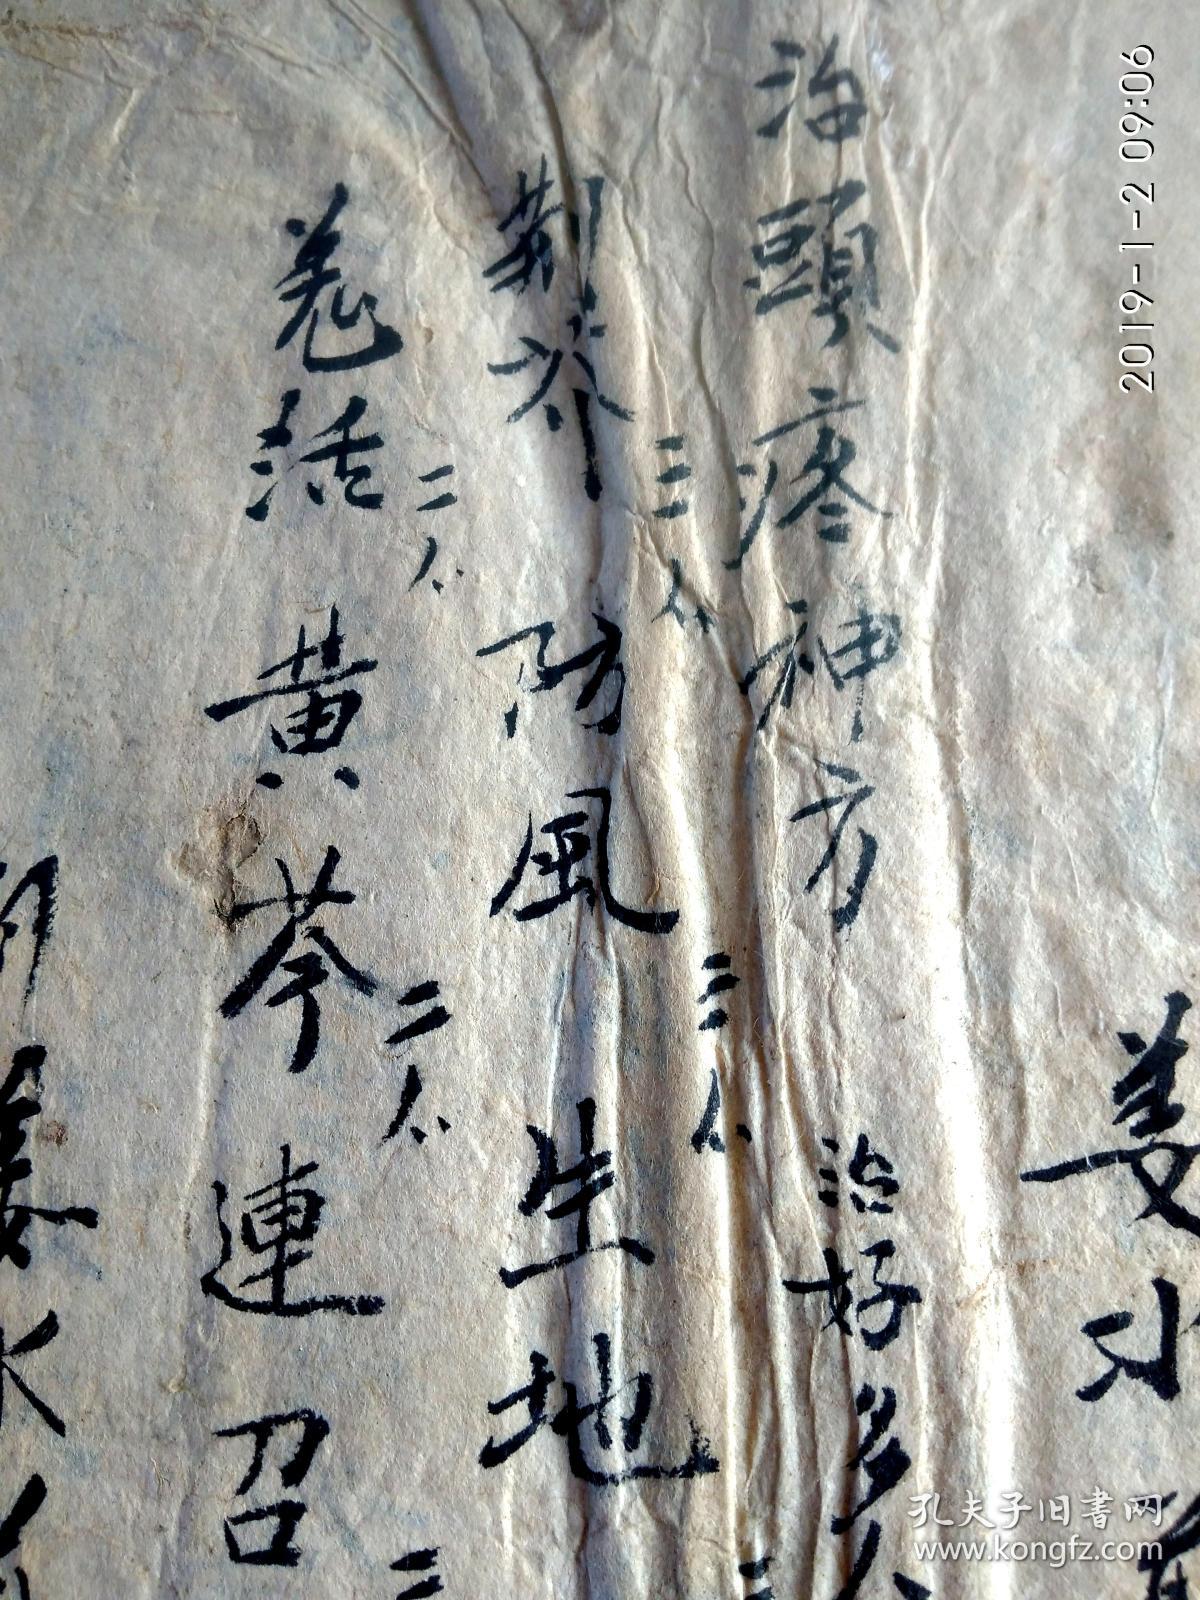 姜水
治頭疼神方 治好多人
荆芥 三分 防風 三分 生地 三
羌活 二分 黄芩 二分 連召 二
2019-1-2 09:06
孔夫子旧書网
www.kongfz.com